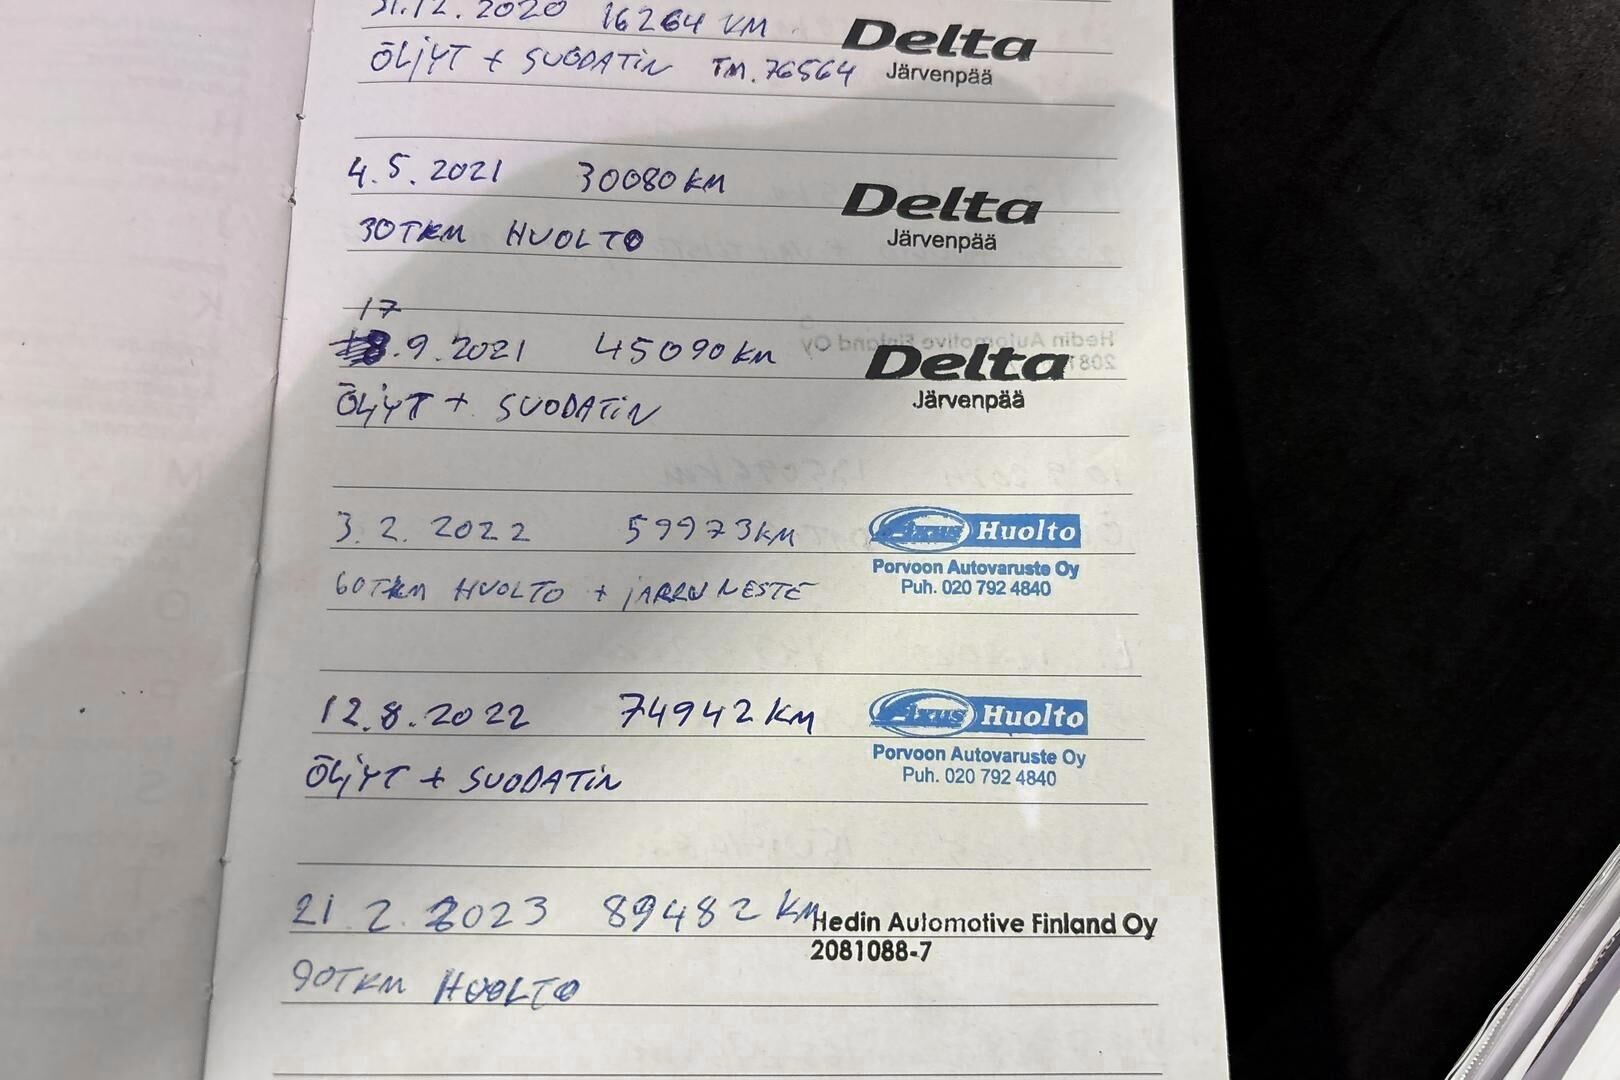 31.12.2020 16264 KM Delta
ÖLJYT + SUODATIN TM.76564 Järvenpää
4.5.2021 30080 KM Delta
30TKM HUOLTO Järvenpää
17
.9.2021 45090 KM Delta
ÖLJYT + SUODATIN Järvenpää
3.2.2022 59973 KM Axus Huolto
Porvoon Autovaruste Oy
60TKM HUOLTO + JARRUNESTE Puh. 020 792 4840
12.8.2022 74942 KM Axus Huolto
Porvoon Autovaruste Oy
ÖLJYT + SUODATIN Puh. 020 792 4840
21.2.2023 89482 KM Hedin Automotive Finland Oy
2081088-7
90TKM HUOLTO